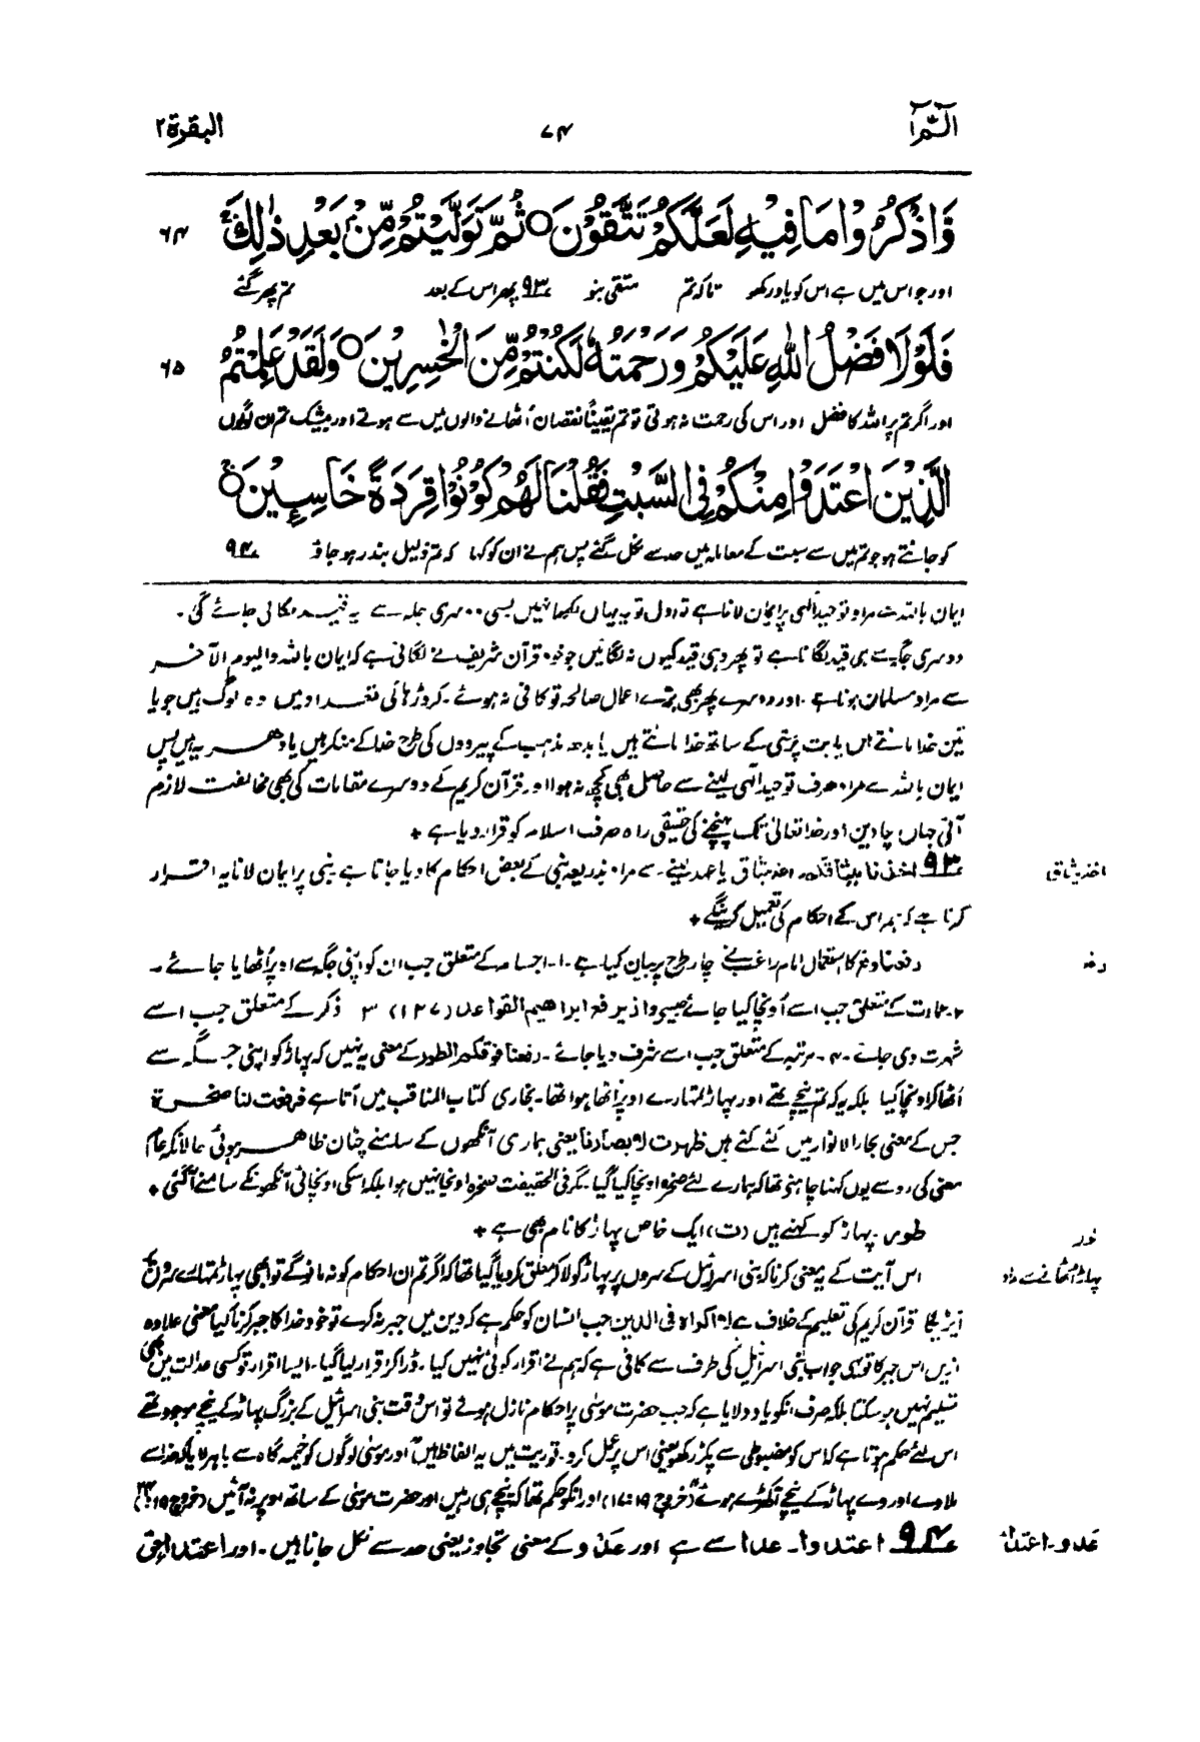 الٓمٓ ۱
۷۴
البقرة ۲
وَّاذْكُرُوْا مَا فِيْهِ لَعَلَّكُمْ تَتَّقُوْنَ ○ ثُمَّ تَوَلَّيْتُمْ مِّنْۢ بَعْدِ ذٰلِكَ ۚ
۶۴
اور جو اس میں ہے اس کو یاد رکھو تاکہ تم متقی بنو ۹۳ پھر اس کے بعد تم پھر گئے
فَلَوْلَا فَضْلُ اللّٰهِ عَلَيْكُمْ وَرَحْمَتُهٗ لَكُنْتُمْ مِّنَ الْخٰسِرِيْنَ ○ وَلَقَدْ عَلِمْتُمُ
۶۵
اور اگر تم پر اللہ کا فضل اور اس کی رحمت نہ ہوتی تو تم یقیناً نقصان اُٹھانے والوں میں سے ہوتے اور بیشک تم ان لوگوں
الَّذِيْنَ اعْتَدَوْا مِنْكُمْ فِي السَّبْتِ فَقُلْنَا لَهُمْ كُوْنُوْا قِرَدَةً خَاسِـِٕيْنَ ○ ۚ
کو جانتے ہو جو تم میں سے سبت کے معاملہ میں حد سے نکل گئے پس ہم نے ان کو کہا کہ تم ذلیل بندر ہو جاؤ ۹۴
ایمان باللہ سے مراد توحید الٰہی پر ایمان لانا ہے تو اول تو یہ یہاں لکھا نہیں کسی دوسری جگہ سے یہ قید لگائی جائے گی۔
دوسری جگہ سے ہی قید لگانا ہے تو پھر وہی قید کیوں نہ لگائیں جو خود قرآن شریف نے لگائی ہے کہ ایمان باللہ والیوم الآخر
سے مراد مسلمان ہونا ہے۔ اور دوسرے پھر بھی نرے اعمال صالحہ تو کافی نہ ہوئے۔ کروڑہا کی تعداد میں وہ لوگ ہیں جو یا
تین خدا مانتے ہیں یا بت پرستی کے ساتھ خدا مانتے ہیں یا بدھ مذہب کے پیرووں کی طرح خدا کے منکر ہیں یا دہریہ ہیں پس
ایمان باللہ سے مراد صرف توحید الٰہی لینے سے حاصل بھی کچھ نہ ہوا اور قرآن کریم کے دوسرے مقامات کی بھی مخالفت لازم
آئی جہاں سچا دین اور خدا تعالیٰ تک پہنچنے کی حقیقی راہ صرف اسلام کو قرار دیا ہے ✦
۹۳ اخذنا میثاقکم۔ اخذ میثاق یا عہد لینے سے مراد بذریعہ نبی کے بعض احکام کا دیا جانا ہے نبی پر ایمان لانا یہ اقرار
اخذ میثاق
کرنا ہے کہ ہم اس کے احکام کی تعمیل کرینگے ✦
رفعنا رفع کا استعمال امام راغب نے چار طرح پر بیان کیا ہے۔ ۱۔ اجسام کے متعلق جب ان کو اپنی جگہ سے اوپر اُٹھایا جائے۔
رفع
۲۔ عمارت کے متعلق جب اسے اُونچا کیا جائے جیسے واذ یرفع ابراھیم القواعد (۱۲۷) ۳ ذکر کے متعلق جب اسے
شہرت دی جائے۔ ۴۔ مرتبہ کے متعلق جب اسے شرف دیا جائے۔ رفعنا فوقکم الطور کے معنی یہ نہیں کہ پہاڑ کو اپنی جگہ سے
اُٹھا کر اونچا کیا بلکہ یہ کہ تم نیچے تھے اور پہاڑ تمہارے اوپر اُٹھا ہوا تھا۔ بخاری کتاب المناقب میں آتا ہے فرفعت لنا صخرة
جس کے معنی بحار الانوار میں کئے گئے ہیں ظھرت لابصارنا یعنی ہماری آنکھوں کے سامنے چٹان ظاہر ہوئی حالانکہ عام
معنی کی رو سے یوں کہنا چاہئے تھا کہ ہمارے لئے صخرہ اونچا کیا گیا۔ مگر فی الحقیقت صخرہ اونچا نہیں ہوا بلکہ اسکی اونچائی آنکھوں کے سامنے آگئی ✦
طور۔ پہاڑ کو کہتے ہیں (ت) ایک خاص پہاڑ کا نام بھی ہے ✦
طور
اس آیت کے یہ معنی کرنا کہ بنی اسرائیل کے سروں پر پہاڑ کو لا کر معلق کر دیا گیا تھا کہ اگر تم ان احکام کو نہ مانو گے تو ابھی پہاڑ تمہارے سروں پر
پہاڑ اٹھانے سے مراد
آپڑیگا قرآن کریم کی تعلیم کے خلاف ہے لا اکراہ فی الدین جب انسان کو حکم ہے کہ دین میں جبر نہ کرے تو خود خدا کا جبر کرنا کیا معنی علاوہ
ازیں اس جبر کا تو یہی جواب بنی اسرائیل کی طرف سے کافی ہے کہ ہم نے اقرار کوئی نہیں کیا۔ ڈرا کر اقرار لیا گیا۔ ایسا اقرار تو کسی عدالت میں بھی
تسلیم نہیں ہو سکتا بلکہ صرف انکو یاد دلایا ہے کہ جب حضرت موسیٰ پر احکام نازل ہوئے تو اس وقت بنی اسرائیل کے بزرگ پہاڑ کے نیچے موجود تھے
اس لئے حکم ہوتا ہے کہ اس کو مضبوطی سے پکڑ رکھو یعنی اس پر عمل کرو۔ توریت میں یہ الفاظ ہیں "اور موسیٰ لوگوں کو خیمہ گاہ سے باہر لایا کہ خدا سے
ملاوے اور وے پہاڑ کے نیچے آ کھڑے ہوئے" (خروج ۱۷:۱۹) اور انکو حکم تھا کہ نیچے ہی رہیں اور حضرت موسیٰ کے ساتھ اوپر نہ آئیں (خروج ۱۹:
۹۴ اعتدوا۔ عدا سے ہے اور عَدْو کے معنی تجاوز یعنی حد سے نکل جانا ہیں۔ اور اعتداء حق
عدو۔ اعتداء